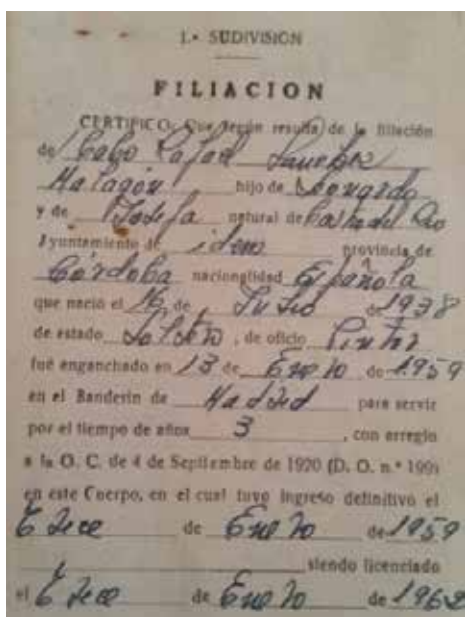 1.ª SUDIVISION
FILIACION
CERTIFICO: Que según resulta de la filiación
de Cabo Rafael Sanchez
Malagón hijo de Leonardo
y de Josefa natural de Castro del Rio
Ayuntamiento de idem provincia de
Córdoba nacionalidad Española
que nació el 16 de Julio de 1938
de estado Soltero, de oficio Pintor
fué enganchado en 13 de Enero de 1959
en el Banderín de Madrid para servir
por el tiempo de años 3, con arreglo
a la O. C. de 4 de Septiembre de 1920 (D. O. n.º 199)
en este Cuerpo, en el cual tuvo ingreso definitivo el
Trece de Enero de 1959
siendo licenciado
el Trece de Enero de 1962